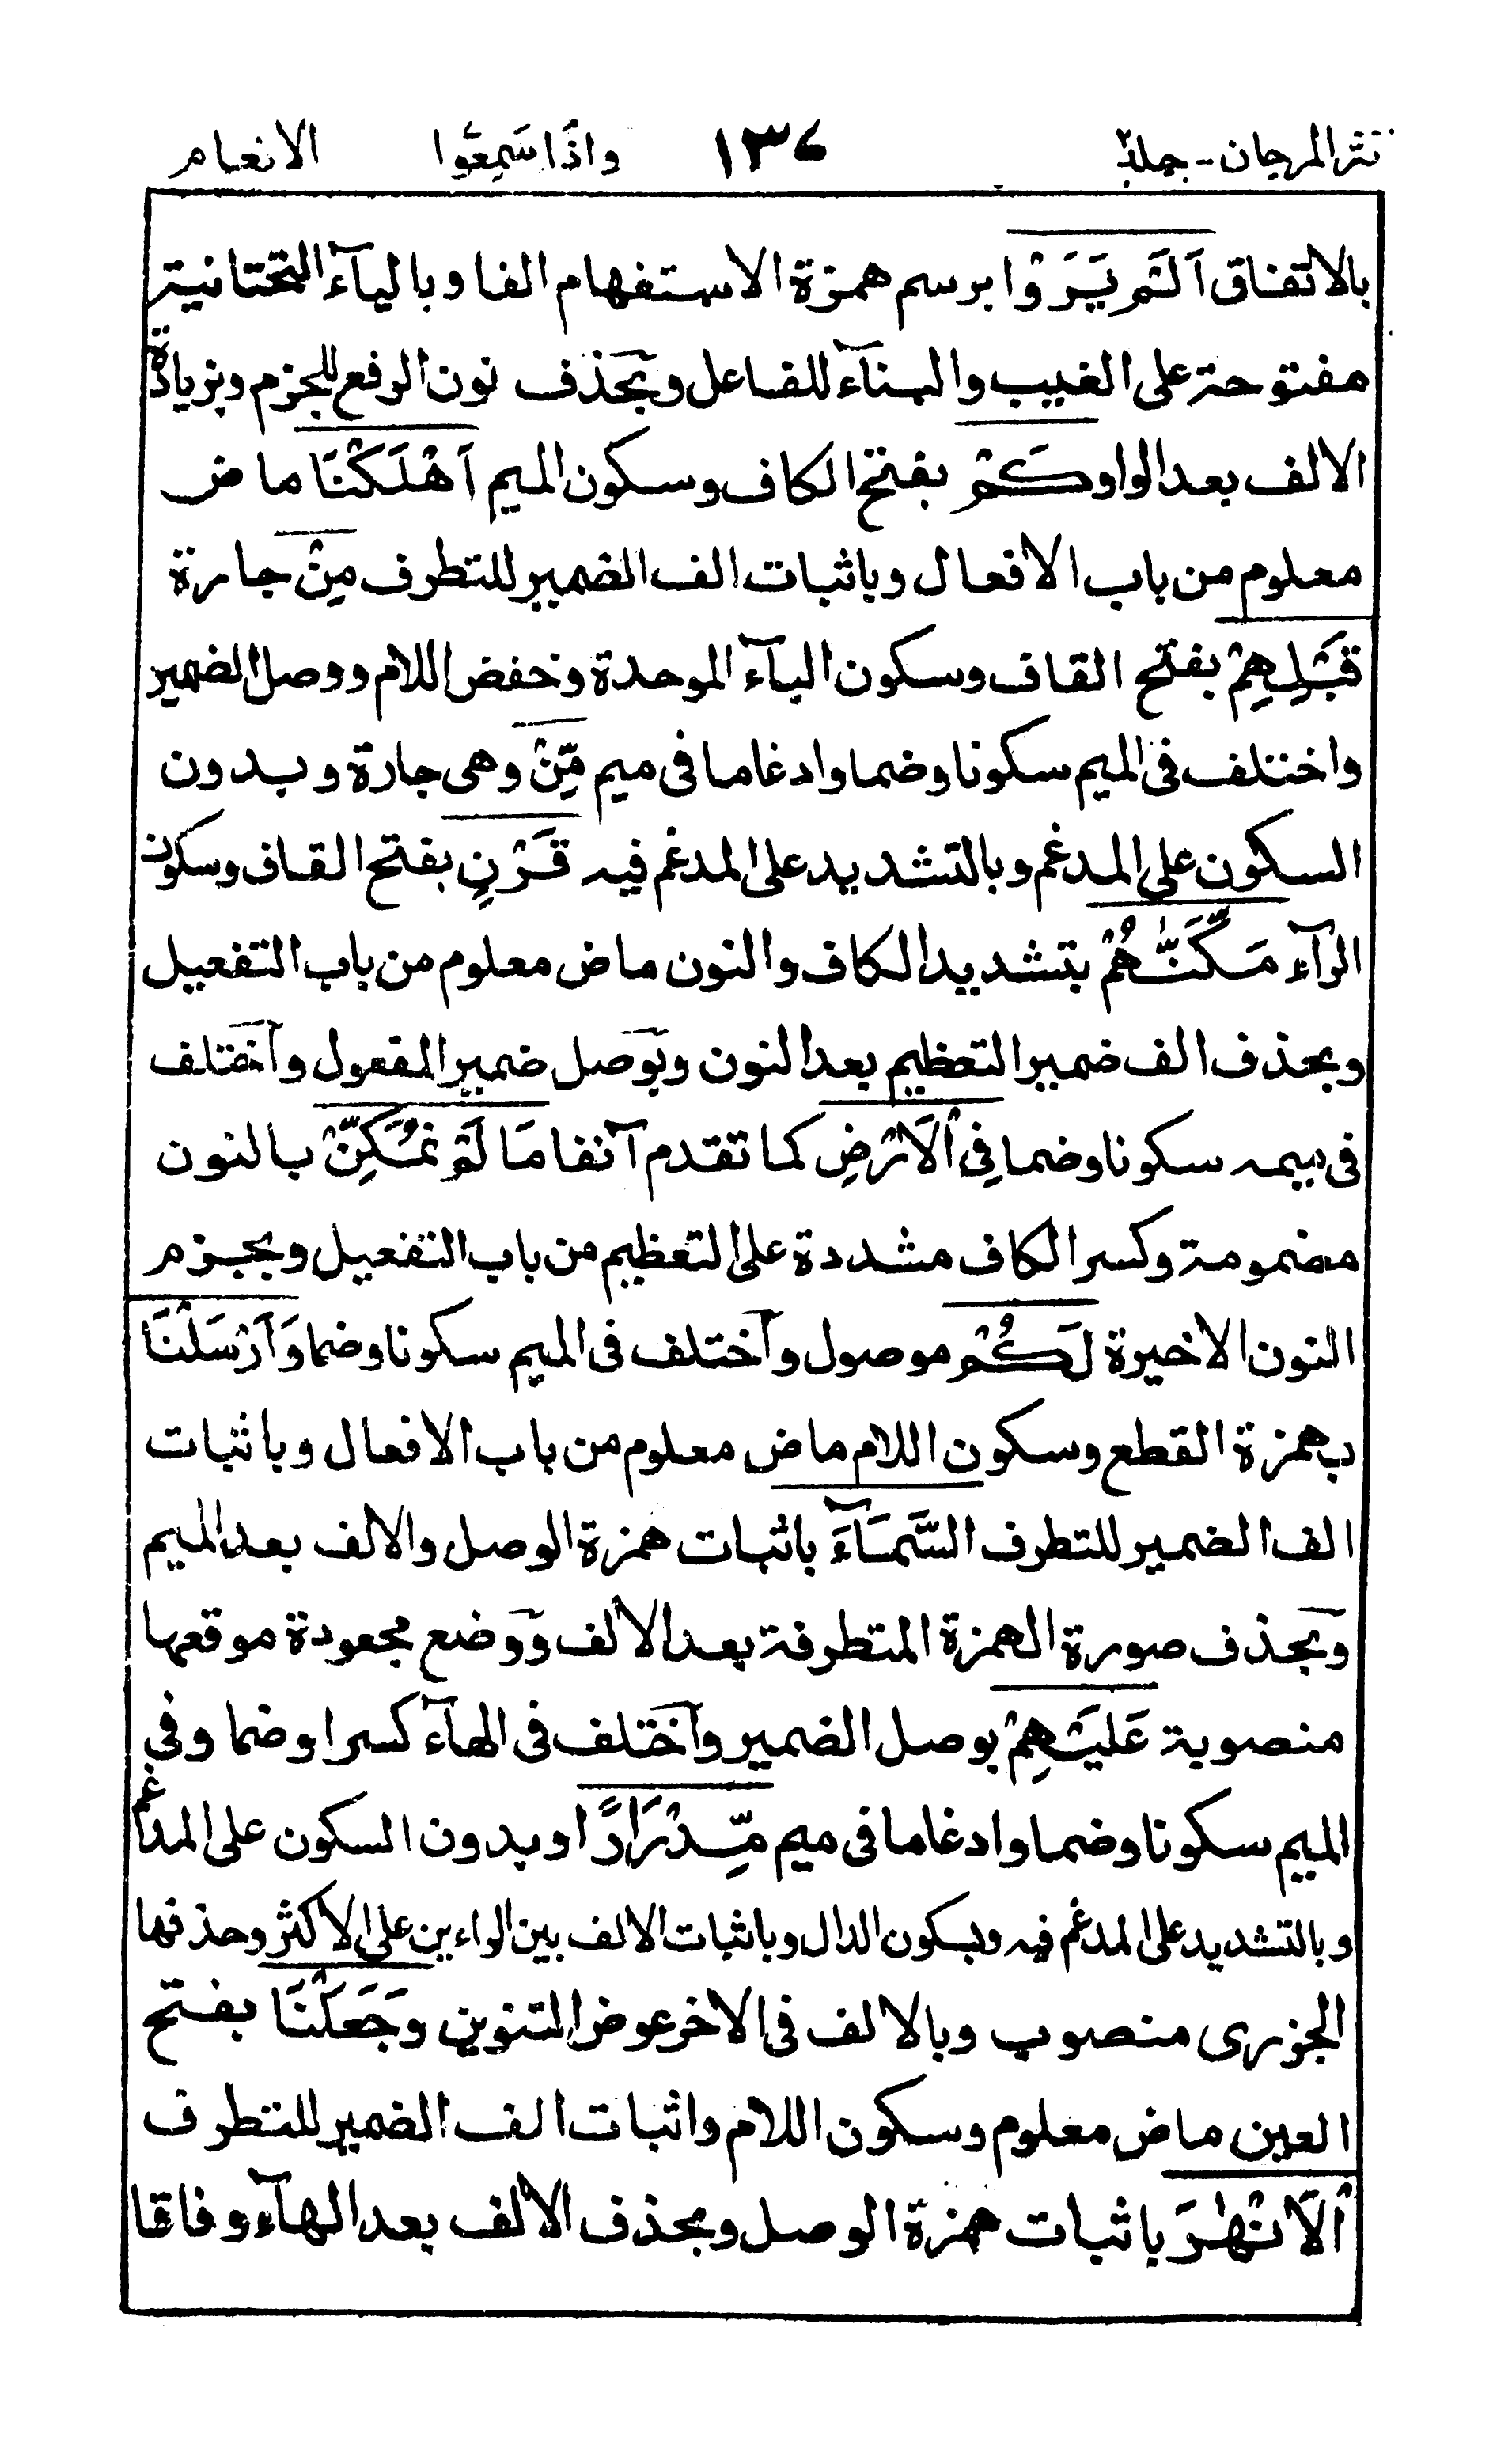 نثر المرجان - جلد ٢ ١٣٤ واذا سَمِعُوا الانعام
بالاتفاق اَلَمْ يَرَوْا برسم همزة الاستفهام الفا وبالياۤء التحتانية
مفتوحة على الغيب والبناۤء للفاعل وبحذف نون الرفع للجزم وبزيادة
الالف بعد الواو كَمْ بفتح الكاف وسكون الميم اَهْلَكْنَا ماض
معلوم من باب الافعال وباثبات الف الضمير للتطرف مِنْ جارة
قَبْلِهِمْ بفتح القاف وسكون الباۤء الموحدة وخفض اللام ووصل الضمير
واختلف فى الميم سكونا وضما وادغاما فى ميم مِّنْ وهى جارة وبدون
السكون على المدغم وبالتشديد على المدغم فيه قَرْنٍ بفتح القاف وسكون
الراۤء مَكَّنّٰهُمْ بتشديد الكاف والنون ماض معلوم من باب التفعيل
وبحذف الف ضمير التعظيم بعد النون وبوصل ضمير المفعول واختلف
فى ميمه سكونا وضما فِى الْاَرْضِ كما تقدم آنفا مَا لَمْ نُمَكِّنْ بالنون
مضمومة وكسر الكاف مشددة على التعظيم من باب التفعيل وبجزم
النون الاخيرة لَكُمْ موصول واختلف فى الميم سكونا وضما وَاَرْسَلْنَا
بهمزة القطع وسكون اللام ماض معلوم من باب الافعال وباثبات
الف الضمير للتطرف السَّمَاۤءَ باثبات همزة الوصل والالف بعد الميم
وبحذف صورة الهمزة المتطرفة بعد الالف ووضع مجعودة موقعها
منصوبة عَلَيْهِمْ بوصل الضمير واختلف فى الهاۤء كسرا وضما وفى
الميم سكونا وضما وادغاما فى ميم مِّدْرَارًا وبدون السكون على المدغم
وبالتشديد على المدغم فيه وبسكون الدال وباثبات الالف بين الراءين على الاكثر وحذفها
الجزرى منصوب وبالالف فى الاخر عوض التنوين وَجَعَلْنَا بفتح
العين ماض معلوم وسكون اللام واثبات الف الضمير للتطرف
الْاَنْهٰرَ باثبات همزة الوصل وبحذف الالف بعد الهاۤء وفاقا